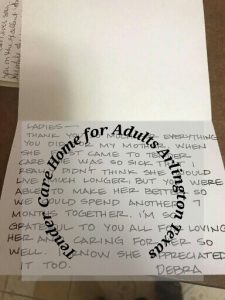 LADIES—
THANK YOU SO MUCH FOR EVERYTHING
YOU DID FOR MY MOTHER. WHEN
SHE FIRST CAME TO TENDER
CARE SHE WAS SO SICK THAT I
REALLY DIDN'T THINK SHE WOULD
LIVE MUCH LONGER, BUT YOU WERE
ABLE TO MAKE HER BETTER SO
WE COULD SPEND ANOTHER 7
MONTHS TOGETHER. I'M SO
GRATEFUL TO YOU ALL FOR LOVING
HER AND CARING FOR HER SO
WELL. I KNOW SHE APPRECIATED
IT TOO.
DEBRA
Tender Care Home for Adults Arlington Texas